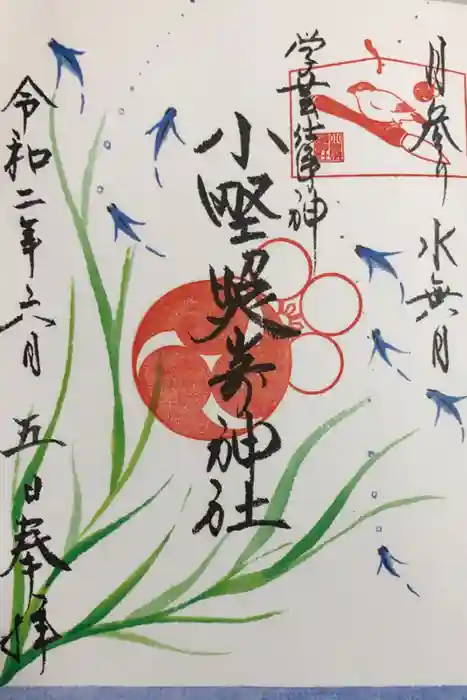 月参り 水無月
学芸仕事神
小野照崎神社
令和二年六月五日奉拝